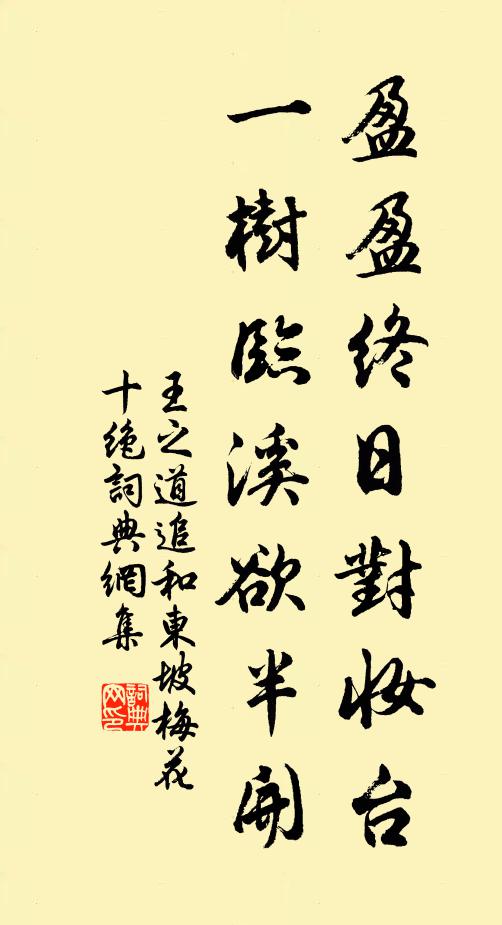 盈盈終日對妝台
一樹臨溪欲半開
王之道追和東坡梅花
十絶詞典網集
詞典
网印